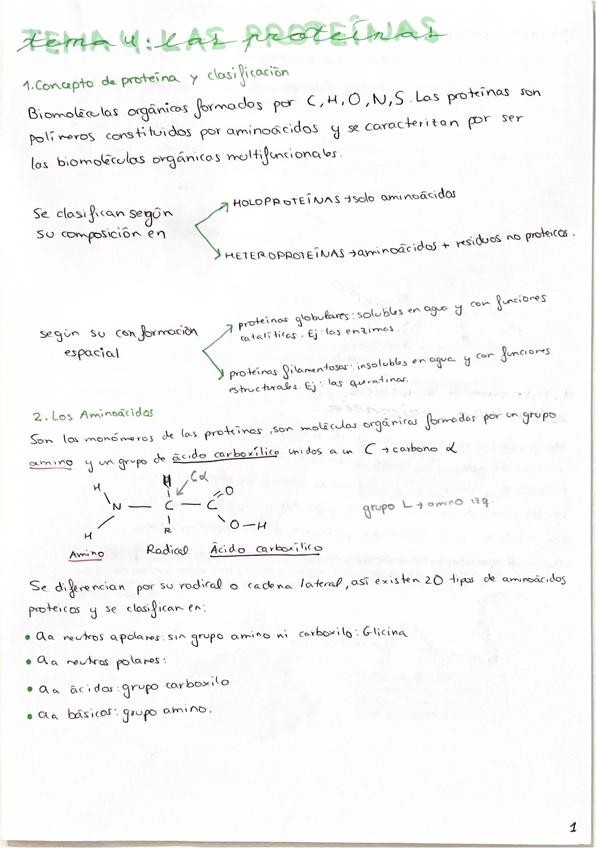 tema 4: las proteínas
1. Concepto de proteína y clasificación
Biomoléculas orgánicas formadas por C, H, O, N, S. Las proteínas son
polímeros constituidos por aminoácidos y se caracterizan por ser
las biomoléculas orgánicas multifuncionales.
Se clasifican según
su composición en
HOLOPROTEÍNAS → solo aminoácidos
HETEROPROTEÍNAS → aminoácidos + residuos no proteicos.
según su conformación
espacial
proteínas globulares: solubles en agua y con funciones
catalíticas. Ej: las enzimas.
proteínas filamentosas: insolubles en agua y con funciones
estructurales. Ej: las queratinas.
2. Los Aminoácidos
Son los monómeros de las proteínas, son moléculas orgánicas formados por un grupo
amino y un grupo de ácido carboxílico unidos a un C → carbono α
H H Cα O
N — C — C
H R O — H
grupo L → amino izq.
Amino Radical Ácido carboxílico
Se diferencian por su radical o cadena lateral, así existen 20 tipos de aminoácidos
proteicos y se clasifican en:
• aa neutros apolares: sin grupo amino ni carboxilo: Glicina
• aa neutros polares:
• aa ácidos: grupo carboxilo
• aa básicos: grupo amino.
1